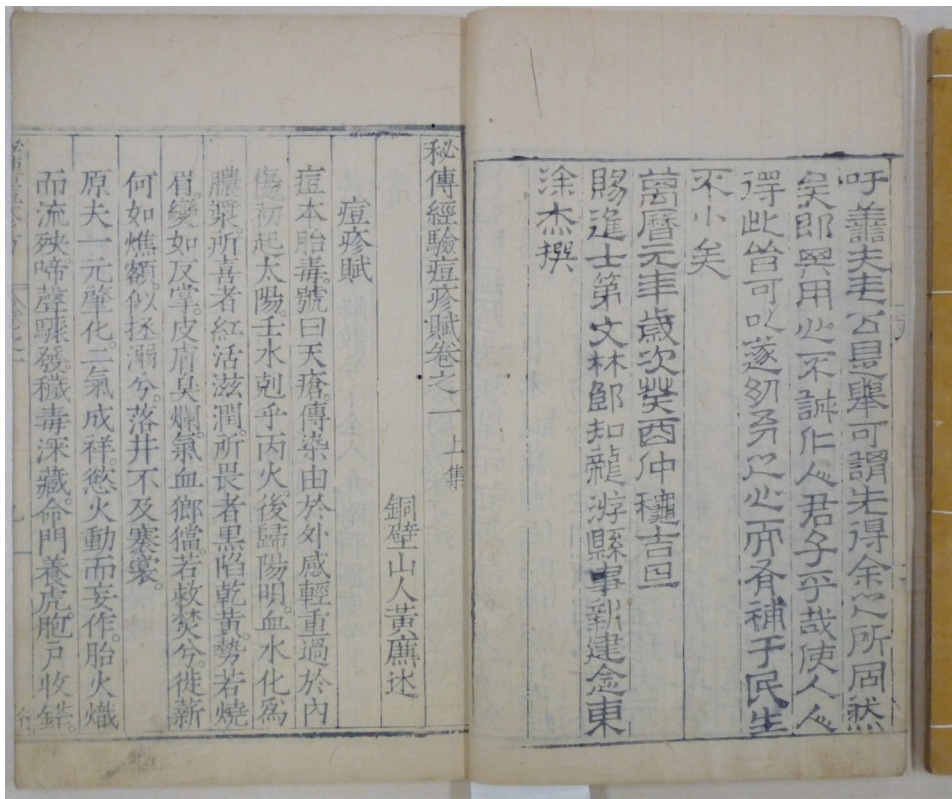 吁譱夫毛公是舉可謂先得余心所同然
矣即其用心不誠仁人君子乎哉使人人
得此皆可以遂幼幼之心而有補于民生
不小矣
萬曆元年歲次癸酉仲穐吉旦
賜進士第文林郎知龍游縣事新建念東
涂杰撰
秘傳經驗痘疹賦卷之一 上集
銅壁山人黃廉述
痘疹賦
痘本胎毒。號曰天瘡。傳染由於外感輕重過於內
傷。初起太陽。壬水剋乎丙火。後歸陽明。血水化為
膿漿。所喜者紅活滋潤。所畏者黑陷乾黃。勢若燒
眉。變如反掌。皮膚臭爛。氣血鄉當。若救焚兮。徙薪
何如燋額。似拯溺兮。落井不及褰裳。
原夫一元肇化。二氣成祥。慾火動而妄作。胎火熾
而流殃。啼聲驟發。穢毒深藏。命門養虎。胞戶收鋩。